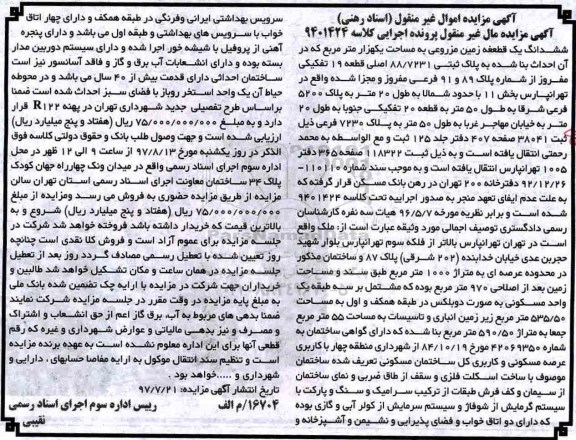 آگهی مزایده اموال غیر منقول (اسناد رهنی)
آگهی مزایده مال غیر منقول پرونده اجرایی کلاسه ۹۴۰۱۴۲۴
ششدانگ یک قطعه زمین مزروعی به مساحت یکهزار متر مربع که در
آن احداث بنا شده به پلاک ثبتی ۸۸/۷۲۳۱ اصلی قطعه ۱۹ تفکیکی
مفروز از شماره پلاک ۸۹ و ۹۱ فرعی مفروز و مجزا شده واقع در
تهرانپارس بخش ۱۱ با حدود شمالا به طول ۲۰ متر به پلاک ۵۲۰۰
فرعی شرقا به طول ۵۰ متر به قطعه ۲۰ تفکیکی جنوبا به طول ۲۰
متر به خیابان مهاجر غربا به طول ۵۰ متر به پلاک ۷۲۳۰ فرعی ذیل
ثبت ۳۸۰۴۱ صفحه ۴۰۷ دفتر جلد ۱۲۵ ثبت و مع الواسطه به محمد
رحمتی انتقال یافته است و به ذیل ثبت ۱۱۸۳۲۲ صفحه ۳۶۵ دفتر
۱۰۰۵ تهرانپارس انتقال یافته است و به موجب سند شماره ۱۱۰۱۰-
۹۲/۱۲/۲۶ دفترخانه ۲۰۰ تهران در رهن بانک مسکن قرار گرفته که
به علت عدم ایفای تعهد منجر به صدور اجراییه تحت کلاسه ۹۴۰۱۴۲۴
شده است و برابر نظریه مورخه ۹۶/۵/۷ هیات سه نفره کارشناسان
رسمی دادگستری توصیف اجمالی مورد وثیقه عبارت است از: ملک واقع
است در تهران تهرانپارس بالاتر از فلکه سوم تهرانپارس بلوار شهید
جربن عدی خیابان خدابنده (۲۰۲ شرقی) پلاک ۸۷ و ساختمان مذکور
در محدوده عرصه ای به متراژ ۱۰۰۰ متر مربع طبق سند و مساحت
زمین بعد از اصلاحی ۹۷۰ متر مربع بوده که مشتمل بر سه طبقه یک
واحد مسکونی به صورت دوبلکس در طبقه همکف و اول به مساحت
۵۳۵/۵۰ متر مربع زیر زمین انباری و تاسیسات به مساحت ۵۵ متر مربع
جمعا به متراژ ۵۹۰/۵۰ متر مربع بنا شده که دارای گواهی ساختمان به
شماره ۴۲۰۶۹۳۵۰ مورخ ۸۴/۱۰/۱۹ از شهرداری منطقه چهار با کاربری
عرصه مسکونی و کاربری کل ساختمان مسکونی تعریف شده ساختمان
موصوف با ساخت اسکلت فلزی و سقف از طاق ضربی و نمای ساختمان
از سیمان و کف فرش طبقات از ترکیب سرامیک و سنگ و پارکت با
سیستم گرمایش از شوفاژ و سیستم سرمایش از کولر آبی و گازی بوده
که دارای دو اتاق خواب و فضای پذیرایی و نشیمن و آشپزخانه و
سرویس بهداشتی ایرانی وفرنگی در طبقه همکف و دارای چهار اتاق
خواب با سرویس های بهداشتی و طبقه اول می باشد و دارای پنجره
آهنی از پروفیل با شیشه خور اجرا شده و دارای سیستم دوربین مدار
بسته بوده و دارای انشعابات آب برق و گاز و فاقد آسانسور نیز است
ساختمان احداثی دارای قدمت بیش از ۴۰ سال می باشد و در محوطه
حیاط آن یک واحد استخر روباز با فضای سبز احداث شده است ضمنا
براساس طرح تفصیلی جدید شهرداری تهران در پهنه R۱۲۲ قرار
دارد و به مبلغ ۷۵/۰۰۰/۰۰۰/۰۰۰ ریال (هفتاد و پنج میلیارد ریال)
ارزیابی شده است و جهت وصول طلب بانک و حقوق دولتی کلاسه فوق
الذکر در روز یکشنبه مورخ ۹۷/۸/۱۳ از ساعت ۹ الی ۱۲ ظهر در محل
اداره سوم اجرای اسناد رسمی واقع در میدان ونک چهارراه جهان کودک
پلاک ۳۴ ساختمان معاونت اجرای اسناد رسمی استان تهران سالن
مزایده از طریق مزایده حضوری به فروش می رسد ومزایده از مبلغ
۷۵/۰۰۰/۰۰۰/۰۰۰ ریال (هفتاد و پنج میلیارد ریال) شروع و به
بالاترین قیمت که خریدار داشته باشد فروخته خواهد شد شرکت در
جلسه مزایده برای عموم آزاد است و فروش کلا نقدی است چنانچه
روز تعیین شده با تعطیل رسمی مصادف گردد روز بعد از تعطیل
جلسه مزایده در همان ساعت و مکان تشکیل خواهد شد طالبین و
خریداران جهت شرکت در مزایده با ارایه چک تضمین شده بانک ملی
به مبلغ پایه مزایده در وقت مقرر در جلسه مزایده شرکت نمایند
ضمنا بدهی های مربوط به آب، برق گاز اعم از حق انشعاب و اشتراک
و مصرف و نیز بدهی مالیاتی و عوارض شهرداری و غیره که رقم
قطعی آنها برای این اداره معلوم نشده است به عهده برنده مزایده
است و تنظیم سند انتقال موکول به ارایه مفاصا حسابهای ، دارایی و
شهرداری و .....خواهد بود .
تاریخ انتشار آگهی مزایده: ۹۷/۷/۲۱
۱۶۷۰۴/م الف
رییس اداره سوم اجرای اسناد رسمی
نقیبی